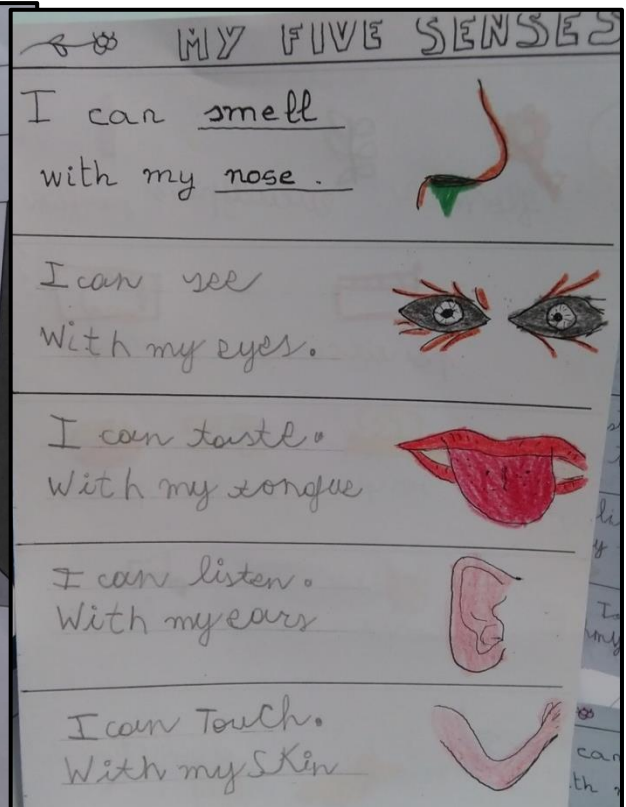 MY FIVE SENSES
I can smell
with my nose.
I can see
With my eyes.
I can taste.
With my tongue
I can listen.
With my ears
I can Touch.
With my SKin
can
th